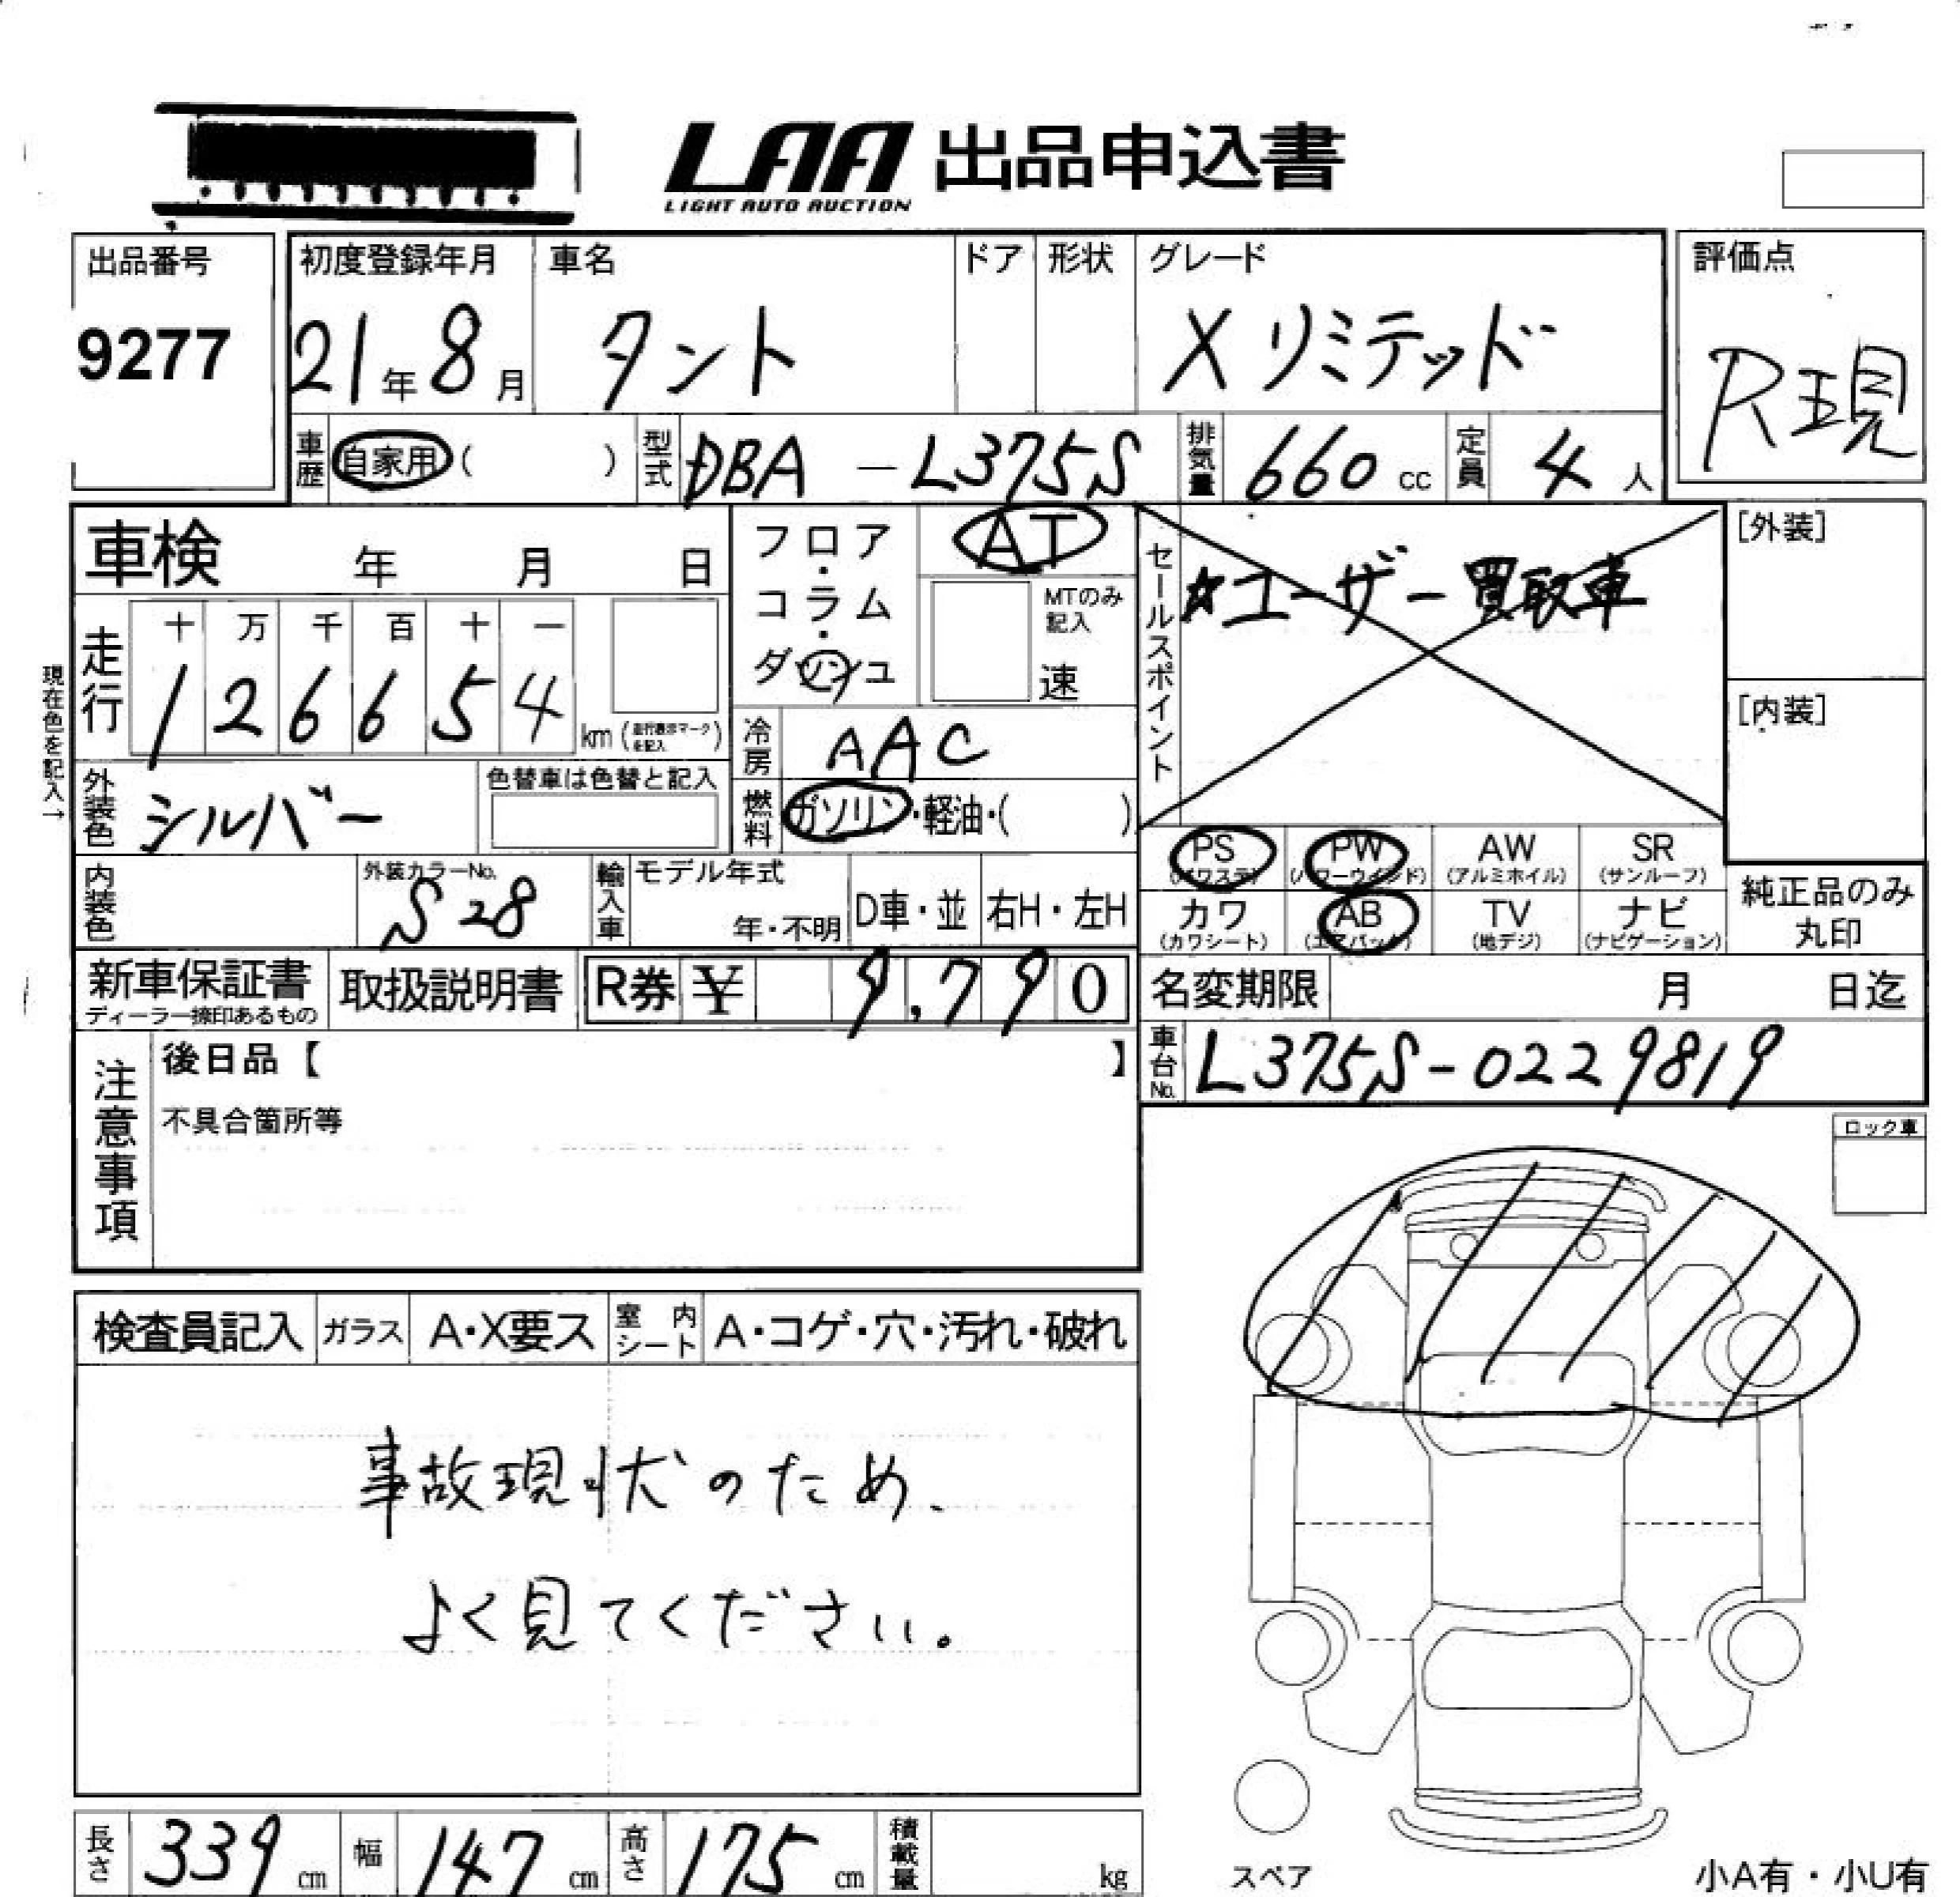 LAA 出品申込書
LIGHT AUTO AUCTION
出品番号
9277
初度登録年月
21年8月
車名
タント
ドア
形状
グレード
Xリミテッド
評価点
R現
車歴 自家用( )
型式 DBA-L375S
排気量 660cc
定員 4人
車検 年 月 日
現在色を記入→
走行
十 万 千 百 十 一
1 2 6 6 5 4 km(走行表示マークを記入)
フロア・コラム・ダッシュ
AT
MTのみ記入
速
セールスポイント
☆ユーザー買取車
[外装]
[内装]
冷房 AAC
外装色 シルバー
色替車は色替と記入
燃料 ガソリン・軽油・( )
PS (パワステ)
PW (パワーウインド)
AW (アルミホイル)
SR (サンルーフ)
カワ (カワシート)
AB (エアバック)
TV (地デジ)
ナビ (ナビゲーション)
純正品のみ
丸印
内装色
外装カラーNo. S28
輸入車
モデル年式
年・不明
D車・並
右H・左H
新車保証書
ディーラー捺印あるもの
取扱説明書
R券 ¥ 9,790
名変期限 月 日迄
車台No. L375S-0229819
注意事項
後日品【 】
不具合箇所等
ロック車
検査員記入
ガラス A・X要ス
室内シート A・コゲ・穴・汚れ・破れ
事故現状のため、
よく見てください。
長さ 339cm
幅 147cm
高さ 175cm
積載量 kg
スペア
小A有・小U有